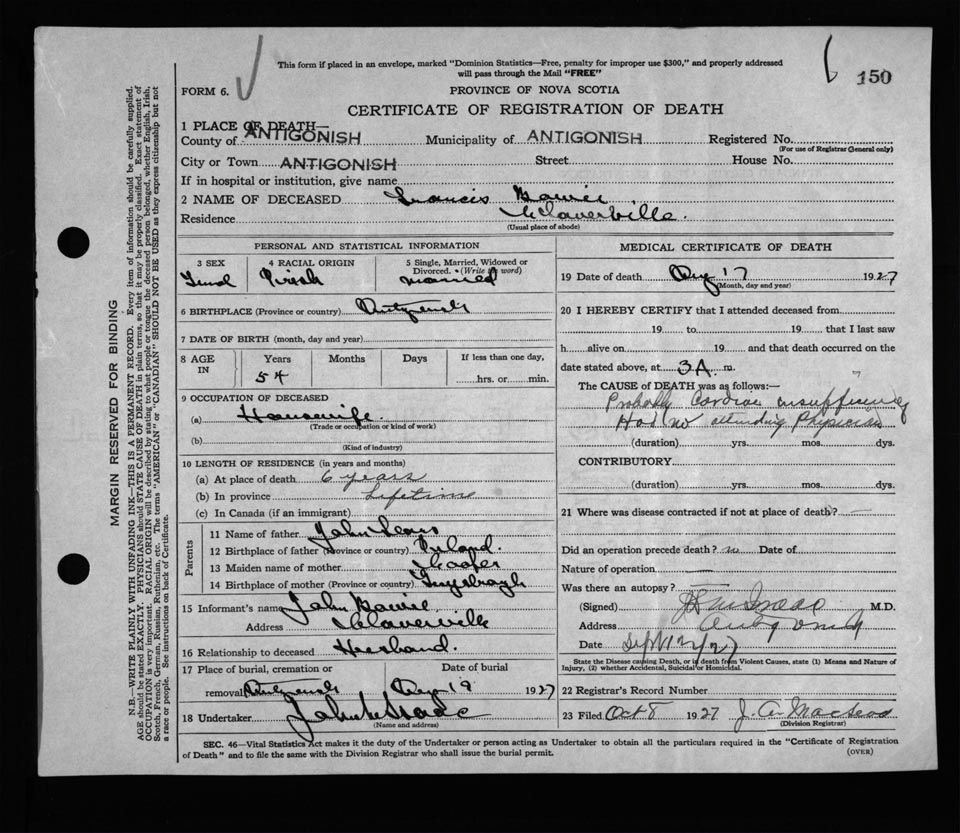 150
This form if placed in an envelope, marked "Dominion Statistics—Free, penalty for improper use $300," and properly addressed
will pass through the Mail "FREE"
FORM 6.
PROVINCE OF NOVA SCOTIA
CERTIFICATE OF REGISTRATION OF DEATH
1 PLACE OF DEATH—
County of ANTIGONISH Municipality of ANTIGONISH Registered No.
(For use of Registrar General only)
City or Town ANTIGONISH Street House No.
If in hospital or institution, give name
2 NAME OF DECEASED Francis
Residence
(Usual place of abode)
PERSONAL AND STATISTICAL INFORMATION
3 SEX 4 RACIAL ORIGIN 5 Single, Married, Widowed or Divorced. (Write the word)
Irish married
6 BIRTHPLACE (Province or country) Antigonish
7 DATE OF BIRTH (month, day and year)
8 AGE IN Years Months Days If less than one day,
54 hrs. or min.
9 OCCUPATION OF DECEASED
(a) Housewife
(Trade or occupation or kind of work)
(b)
(Kind of industry)
10 LENGTH OF RESIDENCE (in years and months)
(a) At place of death 6 years
(b) In province Lifetime
(c) In Canada (if an immigrant)
Parents
11 Name of father John
12 Birthplace of father (Province or country) Ireland.
13 Maiden name of mother
14 Birthplace of mother (Province or country)
15 Informant's name John
Address
16 Relationship to deceased Husband.
17 Place of burial, cremation or Date of burial
removal Antigonish 19 1927
18 Undertaker John
(Name and address)
MEDICAL CERTIFICATE OF DEATH
19 Date of death 17 1927
(Month, day and year)
20 I HEREBY CERTIFY that I attended deceased from
19 to 19 that I last saw
h alive on 19 and that death occurred on the
date stated above, at 3 A. m.
The CAUSE OF DEATH was as follows:—
Probably Cardiac insufficiency
Had no attending Physician
(duration) yrs. mos. dys.
CONTRIBUTORY
(duration) yrs. mos. dys.
21 Where was disease contracted if not at place of death? —
Did an operation precede death? no Date of
Nature of operation —
Was there an autopsy?
(Signed) M.D.
Address Antigonish
Date Sept 12/27
State the Disease causing Death, or in death from Violent Causes, state (1) Means and Nature of
Injury, (2) whether Accidental, Suicidal or Homicidal.
22 Registrar's Record Number
23 Filed Oct 8 1927 J. A. MacLeod
(Division Registrar)
SEC. 46—Vital Statistics Act makes it the duty of the Undertaker or person acting as Undertaker to obtain all the particulars required in the "Certificate of Registration
of Death" and to file the same with the Division Registrar who shall issue the burial permit.
(OVER)
MARGIN RESERVED FOR BINDING
N.B.—WRITE PLAINLY WITH UNFADING INK—THIS IS A PERMANENT RECORD. Every item of information should be carefully supplied.
AGE should be stated EXACTLY. PHYSICIANS should STATE CAUSE OF DEATH in plain terms, so that it may be properly classified. Exact statement of
OCCUPATION is very important. RACIAL ORIGIN will be described by stating to what people or tongue the deceased person belonged, whether English, Irish,
Scotch, French, German, Russian, Ruthenian, etc. The terms "AMERICAN" or "CANADIAN" SHOULD NOT BE USED as they express citizenship but not
a race or people. See instructions on back of Certificate.